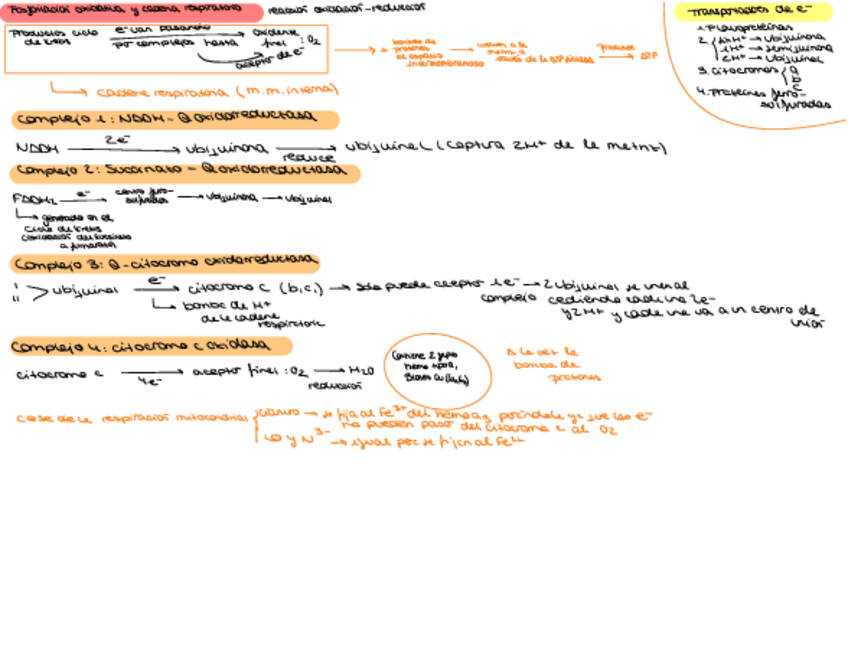 Fosforilación oxidativa y cadena respiratoria reacción oxidación-reducción
Productos ciclo de krebs
e- van pasando por complejos hasta
oxidante final : O2
aceptor de e-
+ bombeo de protones al espacio intermembranoso
vuelven a la matriz a través de la ATP sintasa
produce
ATP
cadena respiratoria (m.m.interna)
Transportadores de e-
1. Flavoproteínas
2.
H+ → ubiquinona
1H+ → semiquinona
2H+ → ubiquinol
3. citocromos
a
b
c
4. Proteínas ferro-
sulfuradas
Complejo 1: NADH-Q oxidorreductasa
NADH
2e-
ubiquinona
reduce
ubiquinol (captura 2H+ de la matriz)
Complejo 2: Succinato - Q oxidorreductasa
FADH2
e-
centro ferro-
sulfurados
ubiquinona
ubiquinol
generado en el
ciclo de krebs
(oxidación del succinato
a fumarato)
Complejo 3: Q-citocromo oxidorreductasa
ubiquinol
e-
citocromo c (b,c1) → solo puede aceptar 1e- → 2 ubiquinol se unen al
complejo cediendo cada uno 2e-
y 2H+ y cada uno va a un centro de
unión
bombeo de H+
de la cadena
respiratoria
Complejo 4: citocromo c oxidasa
citocromo c
4e-
aceptor final : O2 → H2O
reducción
Contiene 2 grupo
hemo tipo a,
iones Cu
la de la
bomba de
protones
cese de la respiración mitocondrial
cianuro → se fija al Fe3+ del hemo a3 porque los e-
no pueden pasar del citocromo c al O2
CO y N3- → igual por se fijan al Fe2+